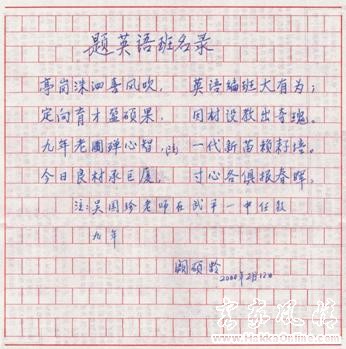 题英语班名录
亭岗洙泗喜风吹，英语编班大有为；
定向育才盈硕果，因材设教出奇瑰。
九年老圃殚心智，[注]一代新苗赖耔培。
今日良材承巨厦，寸心各俱报春晖。
注：吴国珍老师在武平一中任教
九年
阙硕龄
2000年2月12日
客家风情